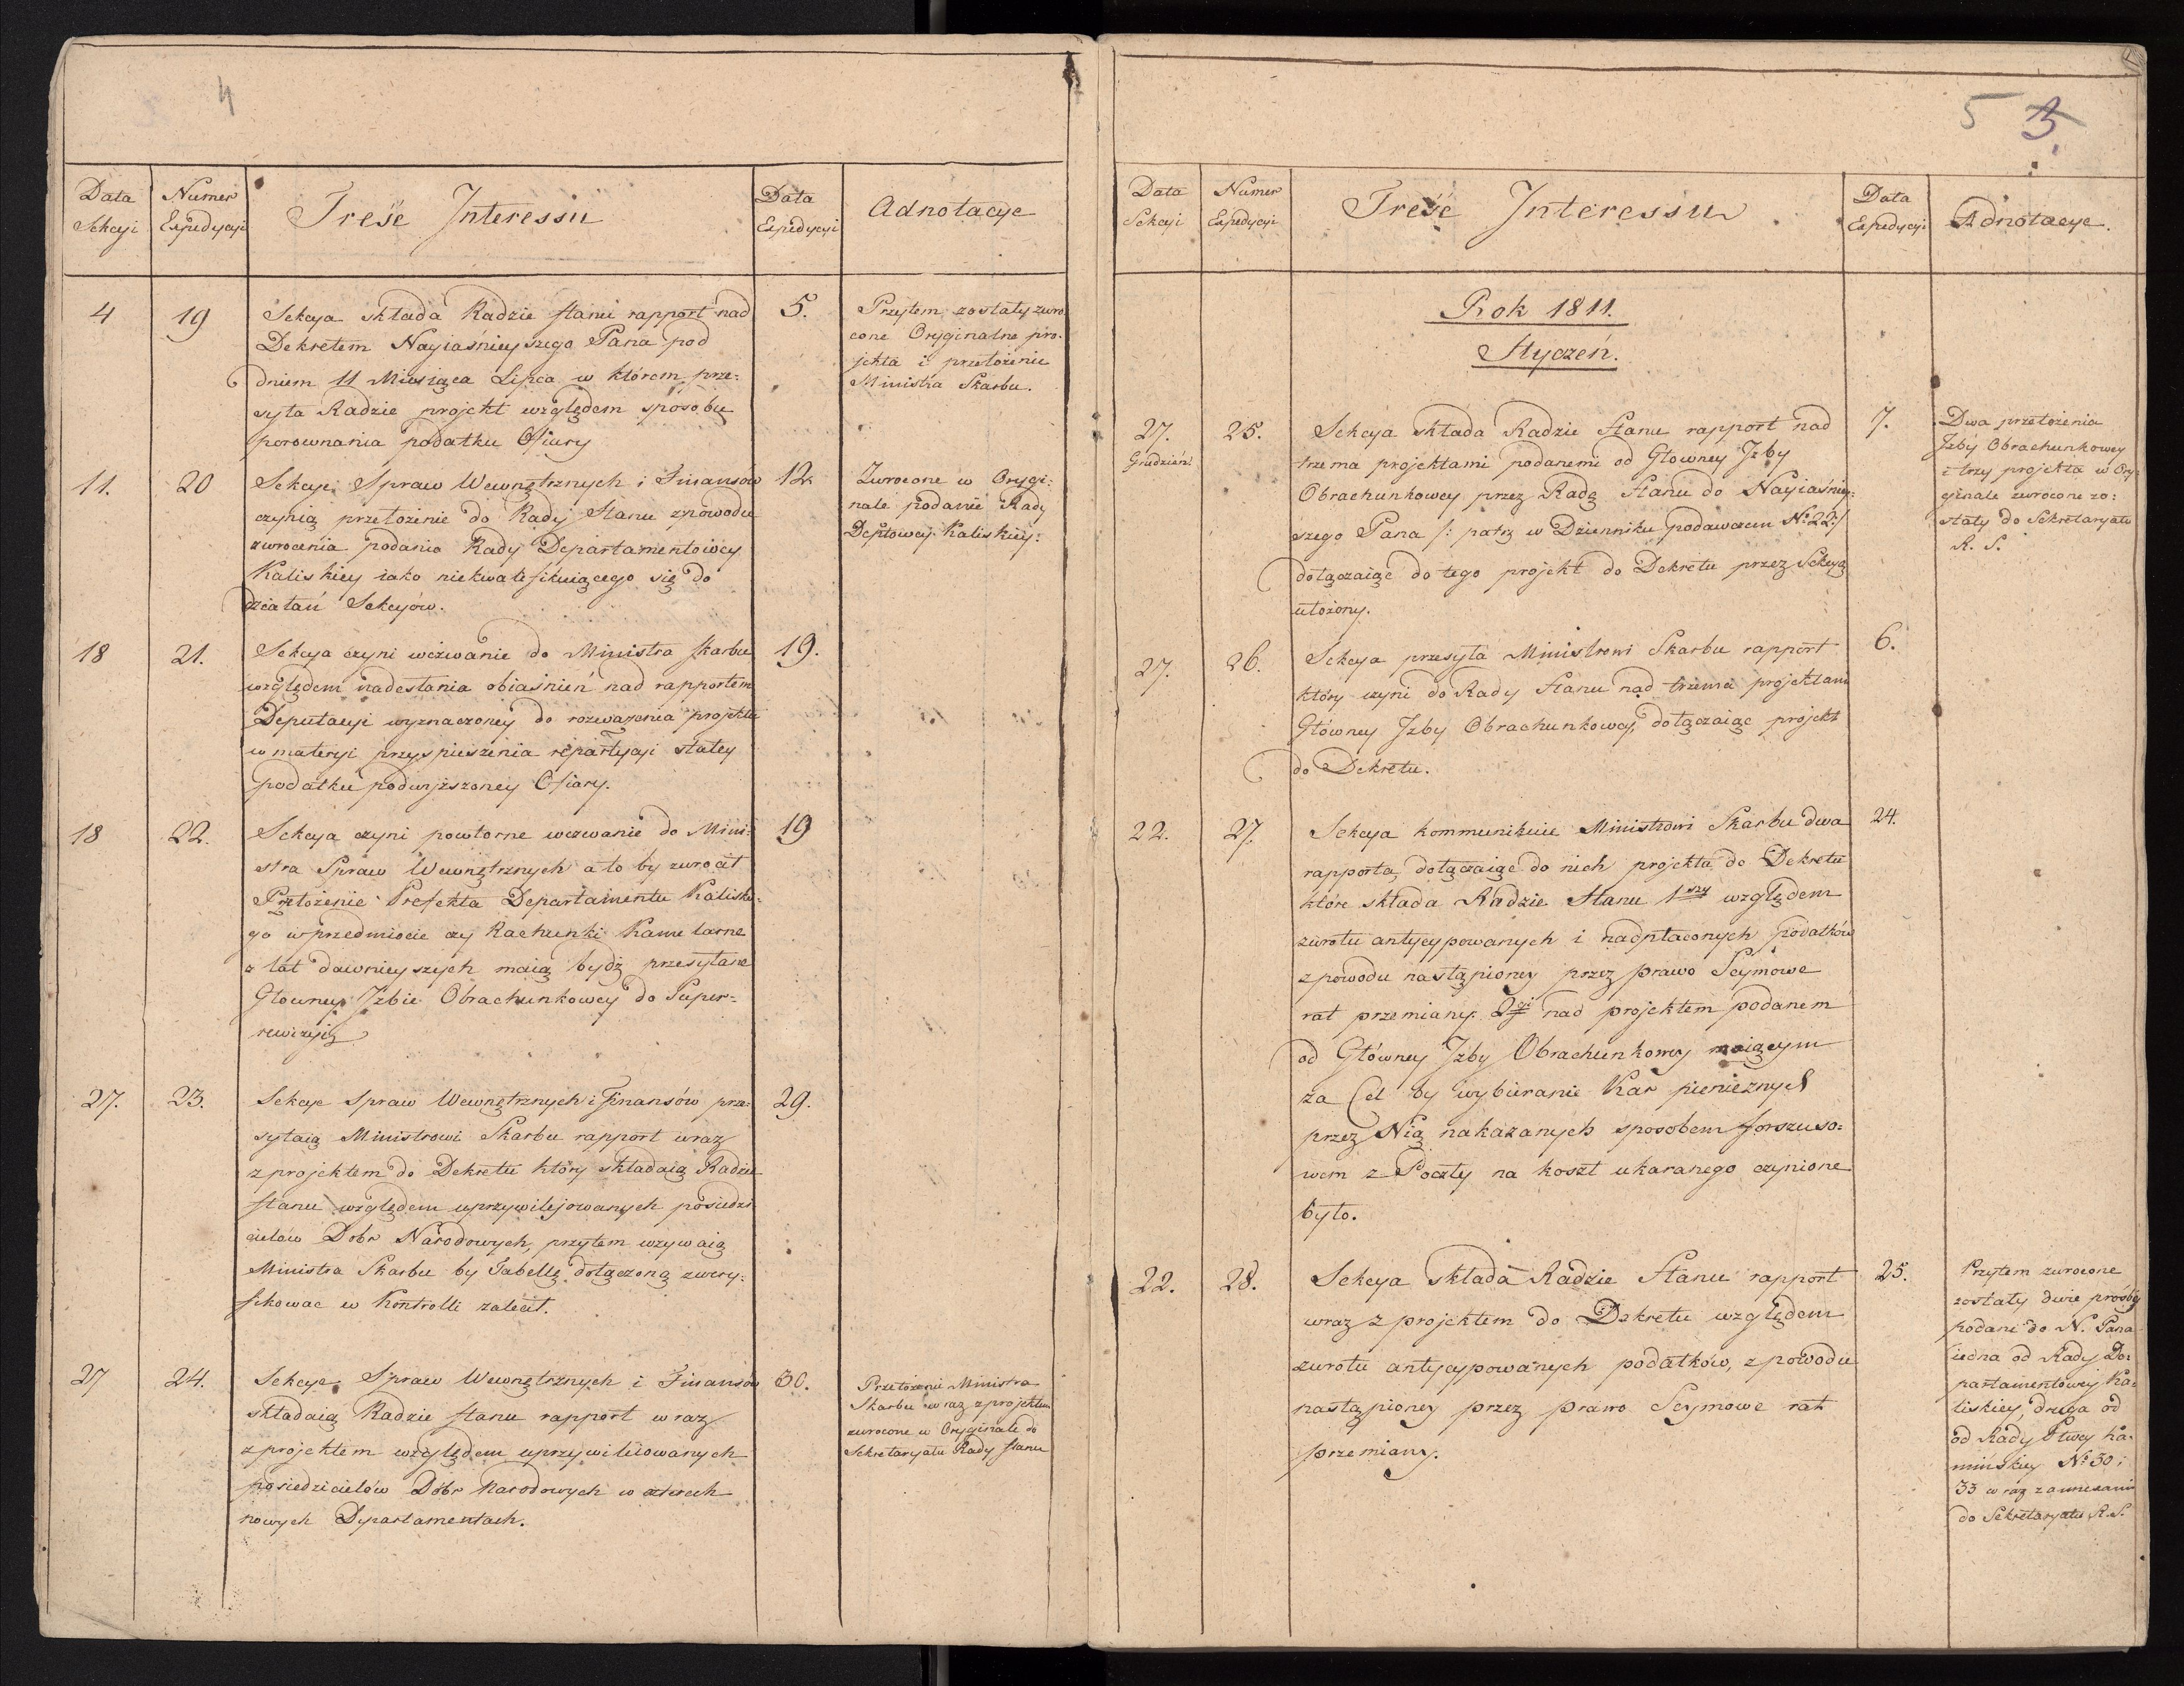 4
Data Sekcyi
Numer Expedycyi
Treść Interessu
Data Expedycyi
Adnotacye
4
19
Sekcya składa Radzie stanu rapport nad
Dekretem Nayiaśnieyszego Pana pod
dniem 11 Miesiąca Lipca w którem prze=
syła Radzie projekt względem sposobu
porownania podatku Ofiary
5.
Przytem zostały zwro
cone Oryginalne pro-
jekta i przełożenie
Ministra Skarbu.
11.
20
Sekcye Spraw Wewnętrznych i Finansów
czynią przełożenie do Rady Stanu zpowodu
zwrocenia podania Rady Departamentowey
Kaliskiey iako niekwalifikuiącego się do
działań Sekcyów.
12.
Zwrocone w Orygi=
nale podanie Rady
Deptowey Kaliskiey.
18
21.
Sekcya czyni wezwanie do Ministra skarbu
względem nadesłania obiaśnień nad rapportem
Deputacyi wyznaczoney do rozważenia projektu
w materyi przyspieszenia repartycyi stałey
podatku podwyższoney Ofiary.
19.
18
22.
Sekcya czyni powtorne wezwanie do Mini=
stra Spraw Wewnętrznych a to by zwrocił
Przełożenie Prefekta Departamentu Kaliskie=
go w przedmiocie czy Rachunki Kamelarne
z lat dawnieyszych maią bydź przesyłane
Głowney Izbie Obrachunkowey do Super=
rewizyi
19
27.
23.
Sekcye Spraw Wewnętrznych i Finansów prze=
syłaią Ministrowi Skarbu rapport wraz
z projektem do Dekretu który składaią Radzie
stanu względem uprzywilejowanych posiedzi
cielów Dobr Narodowych, przytem wzywaią
Ministra Skarbu by Tabellę dołączoną zwery=
fikowac w Kontrolli zalecił.
29.
27
24.
Sekcye Spraw Wewnętrznych i Finansów
składaią Radzie stanu rapport wraz
z projektem względem uprzywileiowanych
posiedzicielów Dóbr Narodowych w czterech
nowych Departamentach.
30.
Przełożenie Ministra
Skarbu wraz z projektem
zwrocone w Oryginale do
Sekretaryatu Rady stanu
5 3
Data Sekcyi
Numer Expedycyi
Treść Interessu
Data Expedycyi
Adnotacye.
Rok 1811.
Styczeń.
27.
Grudzień
25.
Sekcya składa Radzie Stanu rapport nad
trzema projektami podanemi od Głowney Izby
Obrachunkowey przez Radę Stanu do Nayiaśniey=
szego Pana /: patrz w Dzienniku podawczem No 22:/
dołączaiąc do tego projekt do Dekretu przez Sekcyą
ułożony.
7.
Dwa przełożenia
Izby Obrachunkowey
i trzy projekta w Ory
ginale zwrocone zo=
stały do Sekretaryatu
R. S.
27.
26.
Sekcya przesyła Ministrowi Skarbu rapport
który czyni do Rady Stanu nad trzema projektami
Główney Izby Obrachunkowey, dołączaiąc projekt
do Dekretu.
6.
22.
27.
Sekcya kommunikuie Ministrowi Skarbu dwa
rapporta, dołączaiąc do nich projekta do Dekretu
które składa Radzie Stanu 1szy względem
zwrotu antycypowanych i nadpłaconych podatków
z powodu nastąpioney przez prawo Seymowe
rat przemiany. 2gi nad projektem podanem
od Główney Izby Obrachunkowey maiącym
za Cel by wybieranie Kar pienieznych
przez Nią nakazanych sposobem forszuso=
wem z Poczty na koszt ukaranego czynione
było.
24.
22.
28.
Sekcya składa Radzie Stanu rapport
wraz z projektem do Dekretu względem
zwrotu antycypowanych podatków, z powodu
nastąpioney przez prawo Seymowe rat
przemiany.
25.
Przytem zwrocone
zostały dwie prośby
podane do N. Pana
iedna od Rady De=
partamentowey Ka=
liskiey, druga od
od Rady Ptwey Ka=
mińskiey No 30 i
33 wraz z
do Sekretaryatu R.S.